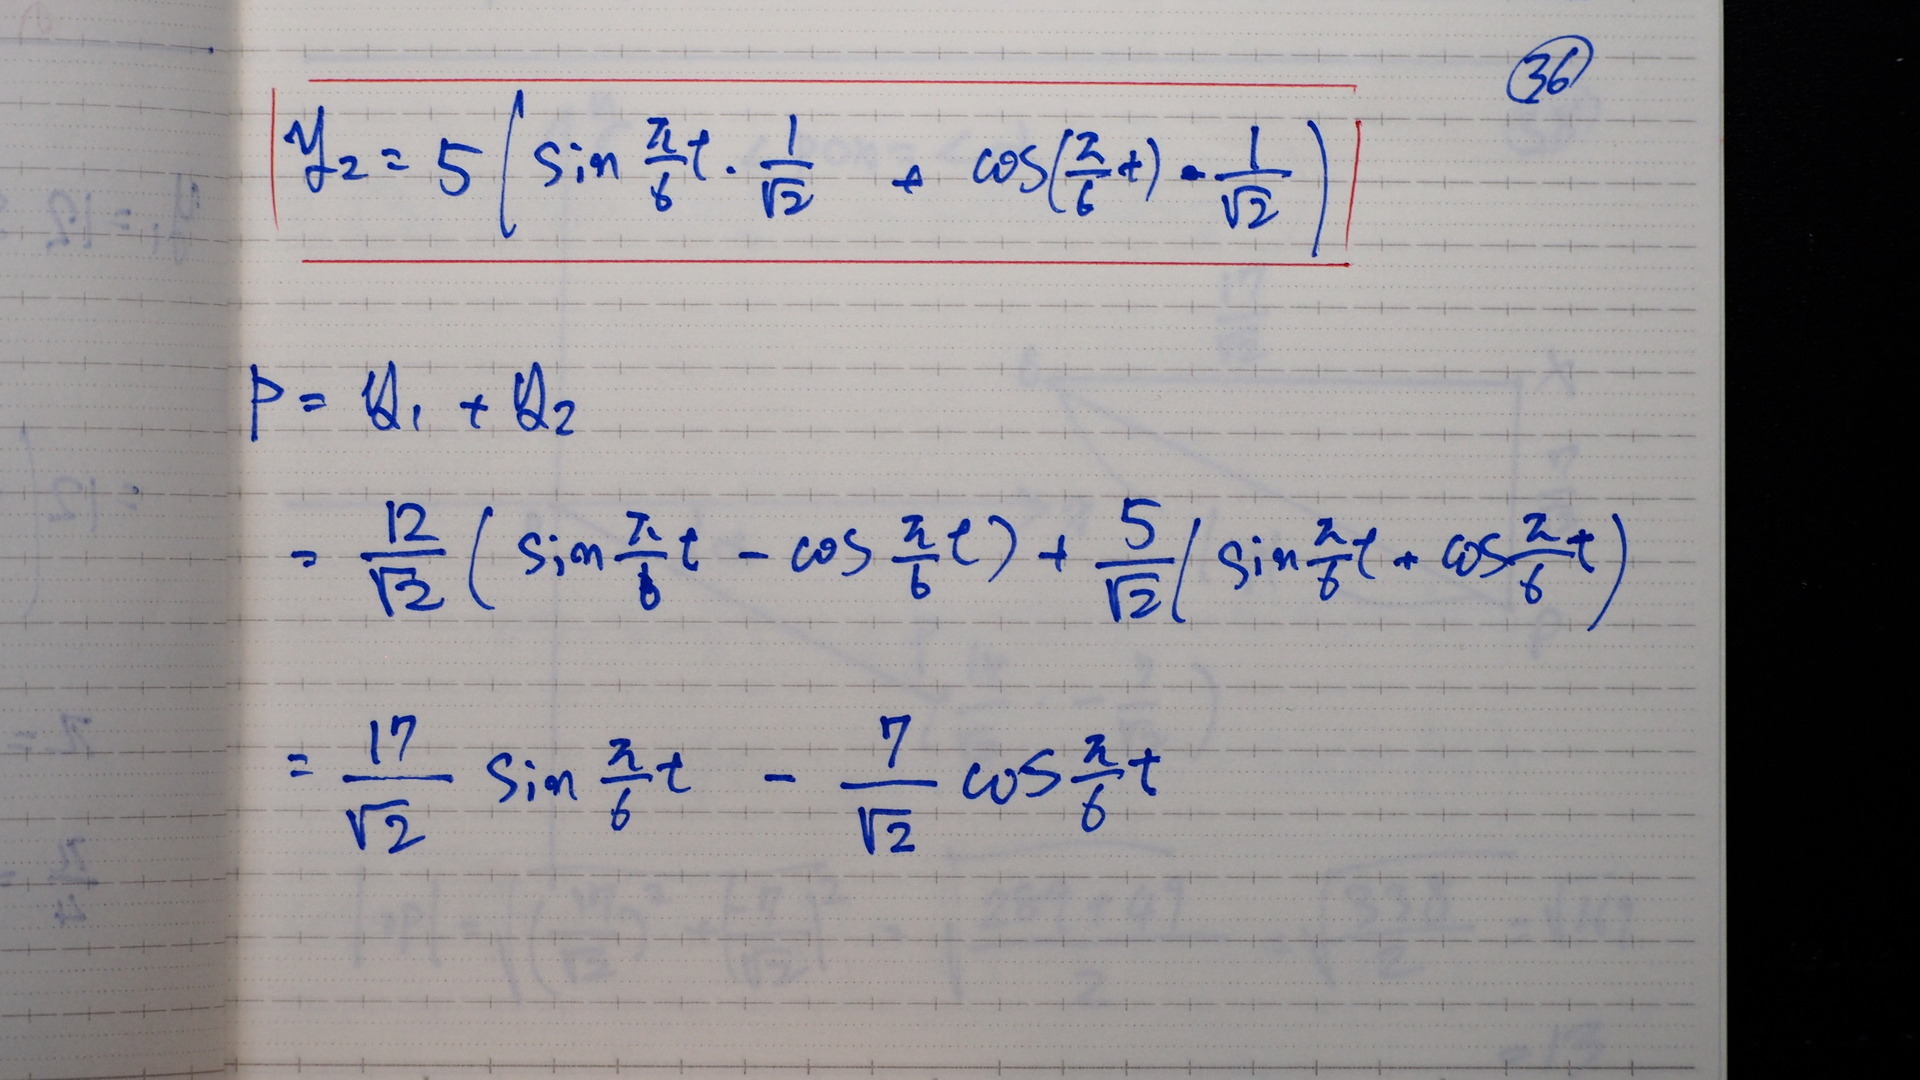 36
y₂ = 5 ( sin π/6 t · 1/√2 + cos(π/6 t) · 1/√2 )
P = y₁ + y₂
= 12/√2 ( sin π/6 t - cos π/6 t ) + 5/√2 ( sin π/6 t + cos π/6 t )
= 17/√2 sin π/6 t - 7/√2 cos π/6 t